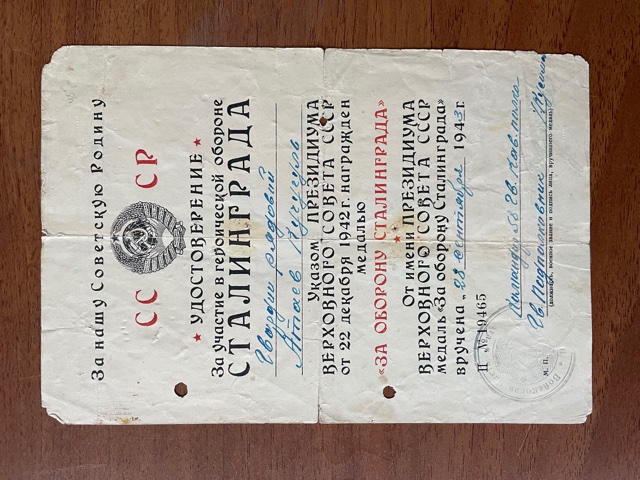 За нашу Советскую Родину
СС СР
★ УДОСТОВЕРЕНИЕ ★
За участие в героической обороне
СТАЛИНГРАДА
Гвардии рядовой
Атаев
Указом ПРЕЗИДИУМА
ВЕРХОВНОГО СОВЕТА СССР
от 22 декабря 1942 г. награжден
медалью
«ЗА ОБОРОНУ СТАЛИНГРАДА»
От имени ПРЕЗИДИУМА
ВЕРХОВНОГО СОВЕТА СССР
медаль «За оборону Сталинграда»
вручена „28 сентября 1943 г.
П № 19465
Командир 58 гв. кав. полка
Гв. Подполковник
(должность, военное звание и подпись лица, вручившего медаль)
М. П.